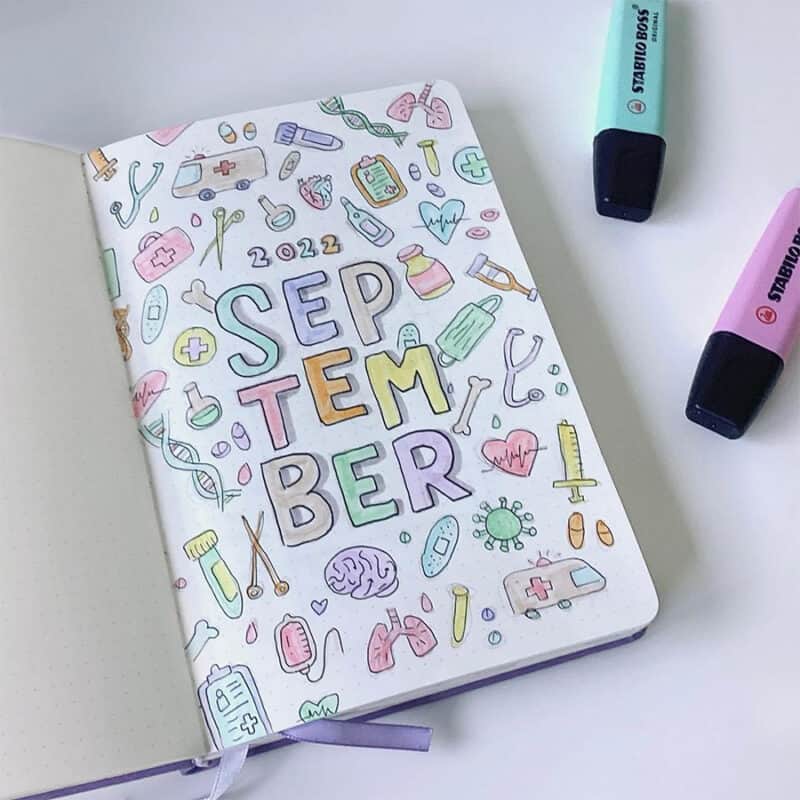 2022
SEP
TEM
BER
STABILO BOSS
ORIGINAL
STABILO BOSS